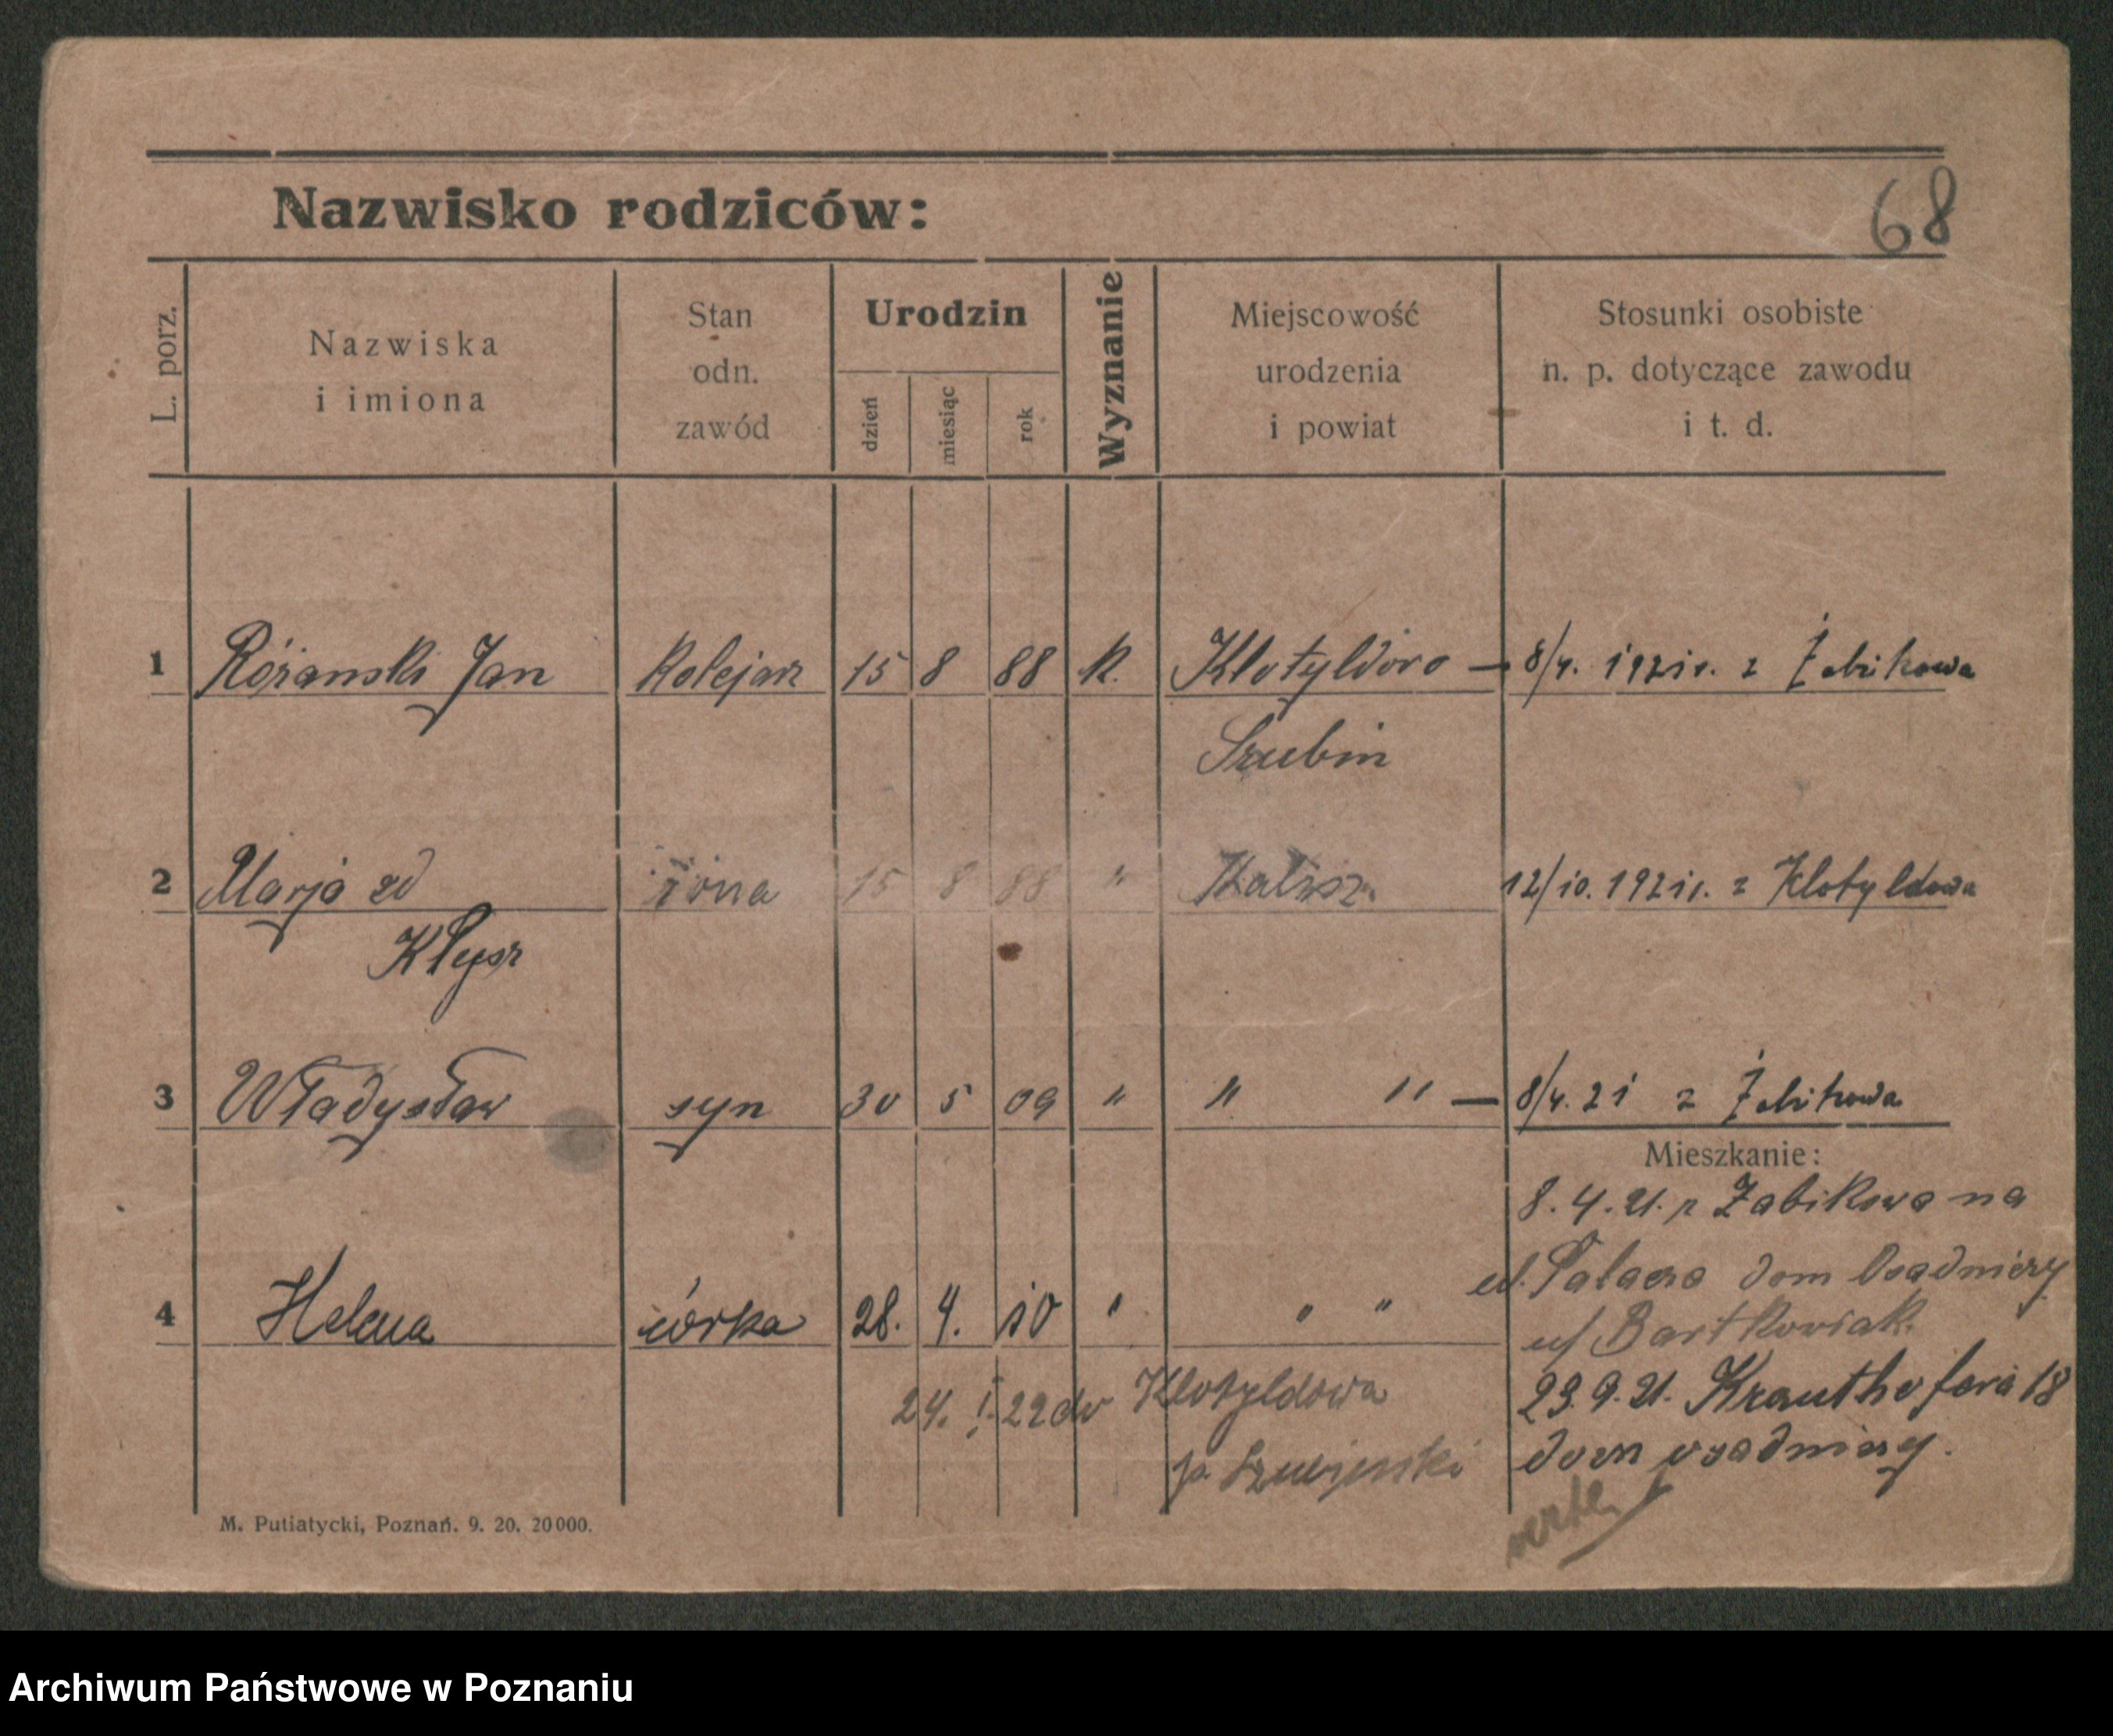 Nazwisko rodziców:
68
L. porz.
Nazwiska
i imiona
Stan
odn.
zawód
Urodzin
dzień
miesiąc
rok
Wyznanie
Miejscowość
urodzenia
i powiat
Stosunki osobiste
n. p. dotyczące zawodu
i t. d.
1 Różanski Jan Kolejarz 15 8 88 k. Klotyldowo — 8/4. 1921 r. z Żabikowa
Szubin
2 Marja zd żona 15 8 88 " Kalisz. 12/10. 1921 r. z Klotyldowa
Kłysz
3 Władysław syn 30 5 09 " " " — 8/4. 21 z Żabikowa
Mieszkanie:
8. 4. 21. z Żabikowa na
4 Helena córka 28. 4. 10 " " "
ul. Palacza dom Osadniczy
u/ Bartkowiak.
24. I. 22 do Klotyldowa
23. 9. 21. Krauthofera 18
dom osadniczy.
p. Szubiński
verte
M. Putiatycki, Poznań. 9. 20. 20000.
Archiwum Państwowe w Poznaniu